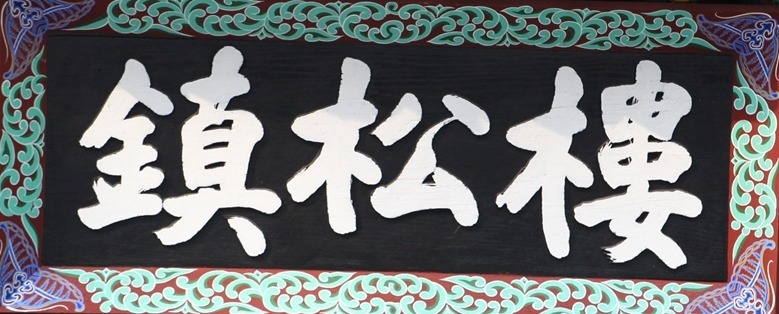 鎮松樓